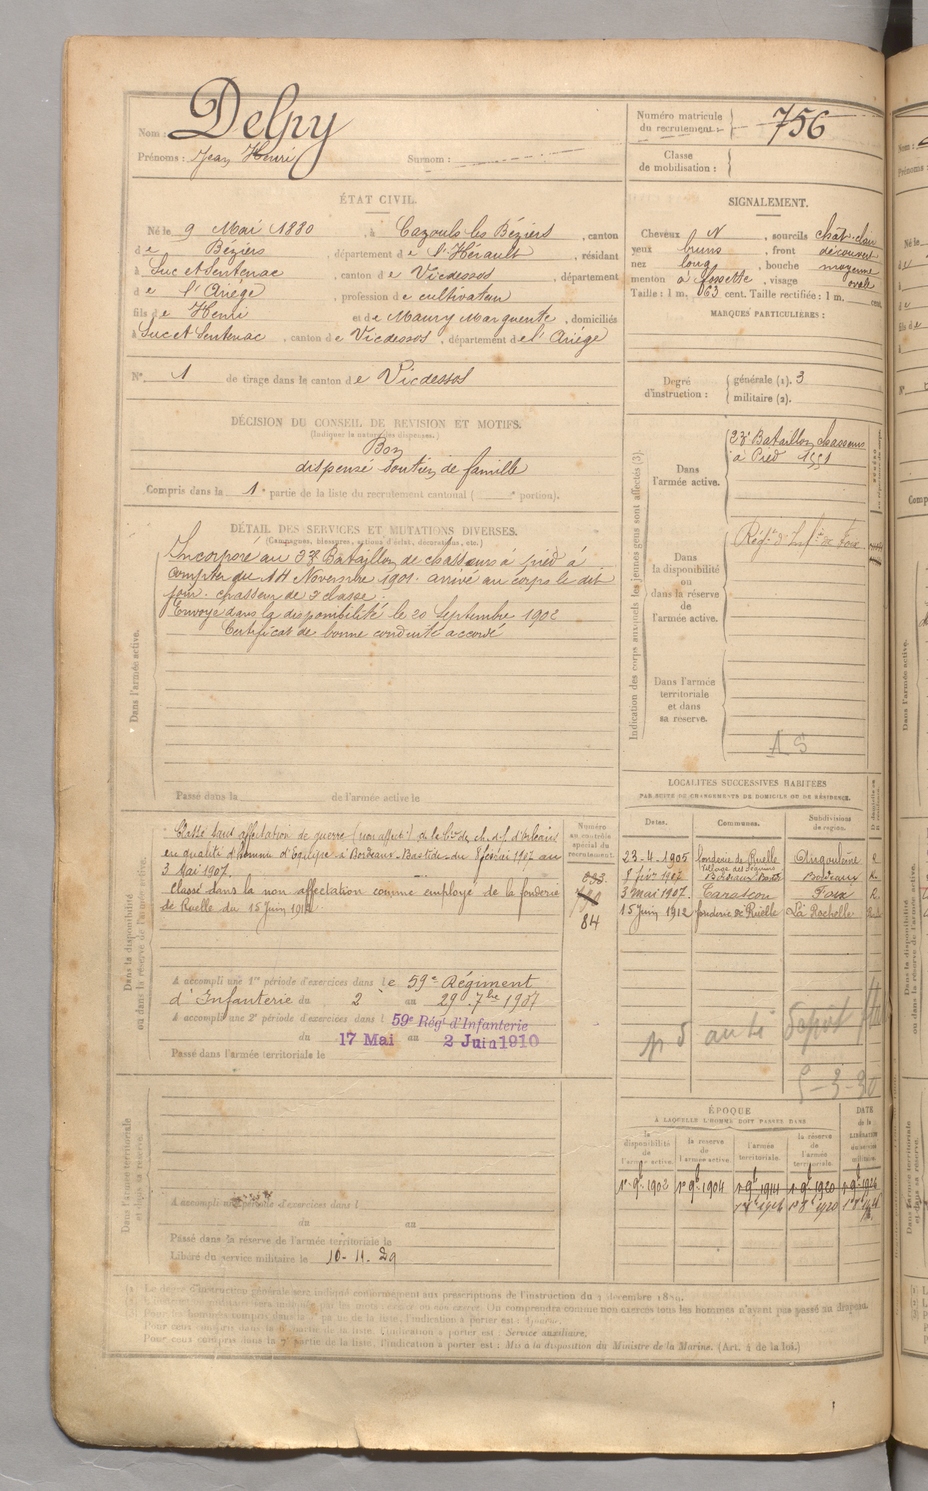 Nom : Delpy
Prénoms : Jean Henri Surnom :
Numéro matricule du recrutement : 756
Classe de mobilisation :
ÉTAT CIVIL.
Né le 9 Mai 1880, à Cazouls les Béziers, canton
de Béziers, département de l'Hérault, résidant
à Suc et Sentenac, canton de Vicdessos, département
de l'Ariège, profession de cultivateur
fils de Henri et de Maury Marguerite, domiciliés
à Suc et Sentenac, canton de Vicdessos, département de l'Ariège
N° 1 de tirage dans le canton de Vicdessos
SIGNALEMENT.
Cheveux N, sourcils chât. clair
yeux bruns, front découvert
nez long, bouche moyenne
menton à fossette, visage ovale
Taille : 1 m. 663 cent. Taille rectifiée : 1 m. cent.
MARQUES PARTICULIÈRES :
Degré d'instruction : générale (1). 3
militaire (2).
DÉCISION DU CONSEIL DE REVISION ET MOTIFS.
(Indiquer la nature des dispenses.)
Bon
dispensé soutien de famille
Compris dans la 1e partie de la liste du recrutement cantonal ( e portion).
DÉTAIL DES SERVICES ET MUTATIONS DIVERSES.
(Campagnes, blessures, actions d'éclat, décorations, etc.)
Dans l'armée active.
Incorporé au 23e Bataillon de chasseurs à pied à
compter du 14 Novembre 1901. arrivé au corps le dit
jour. chasseur de 2e classe.
Envoyé dans la disponibilité le 20 Septembre 1902
Certificat de bonne conduite accordé
Passé dans la de l'armée active le
Indication des corps auxquels les jeunes gens sont affectés (3).
Dans l'armée active.
23e Bataillon chasseurs
à Pied
Dans la disponibilité ou dans la réserve de l'armée active.
Régt d'Inf. de Foix
Dans l'armée territoriale et dans sa réserve.
Dans la disponibilité ou dans la réserve de l'armée active.
Classé sans affectation de guerre (non affecté) de la Cie de ch. d. f. d'Orléans
en qualité d'homme d'Equipe à Bordeaux-Bastide du 8 février 1907 au
3 Mai 1907.
Classé dans la non affectation comme employé de la fonderie
de Ruelle du 15 Juin 1912
Numéro au contrôle spécial du recrutement.
84
A accompli une 1re période d'exercices dans le 59e Régiment
d'Infanterie du 2 au 29 7bre 1907
A accompli une 2e période d'exercices dans l 59e Régt d'Infanterie
du 17 Mai au 2 Juin 1910
Passé dans l'armée territoriale le
LOCALITÉS SUCCESSIVES HABITÉES
PAR SUITE DE CHANGEMENTS DE DOMICILE OU DE RÉSIDENCE.
Dates. Communes. Subdivisions de région.
23-4-1905 fonderie de Ruelle Angoulême
8 févr 1907 Bordeaux Bordeaux
3 mai 1907. Tarascon Foix
15 juin 1912 fonderie de Ruelle La Rochelle
ÉPOQUE
À LAQUELLE L'HOMME DOIT PASSER DANS
la disponibilité de l'armée active. la réserve de l'armée active. l'armée territoriale. la réserve de l'armée territoriale. DATE de la LIBÉRATION du service militaire.
1er 9b 1902 1er 9b 1904 1er 9b 1914 1er 9b 1920 1er 9b 1926
Dans l'armée territoriale et dans sa réserve.
A accompli une période d'exercices dans l
du au
Passé dans la réserve de l'armée territoriale le
Libéré du service militaire le 10-11-29
(1) Le degré d'instruction générale sera indiqué conformément aux prescriptions de l'instruction du
Pour ceux compris dans la 6e partie de la liste, l'indication à porter est : Service auxiliaire.
Pour ceux compris dans la 7e partie de la liste, l'indication à porter est : Mis à la disposition du Ministre de la Marine. (Art. 4 de la loi.)